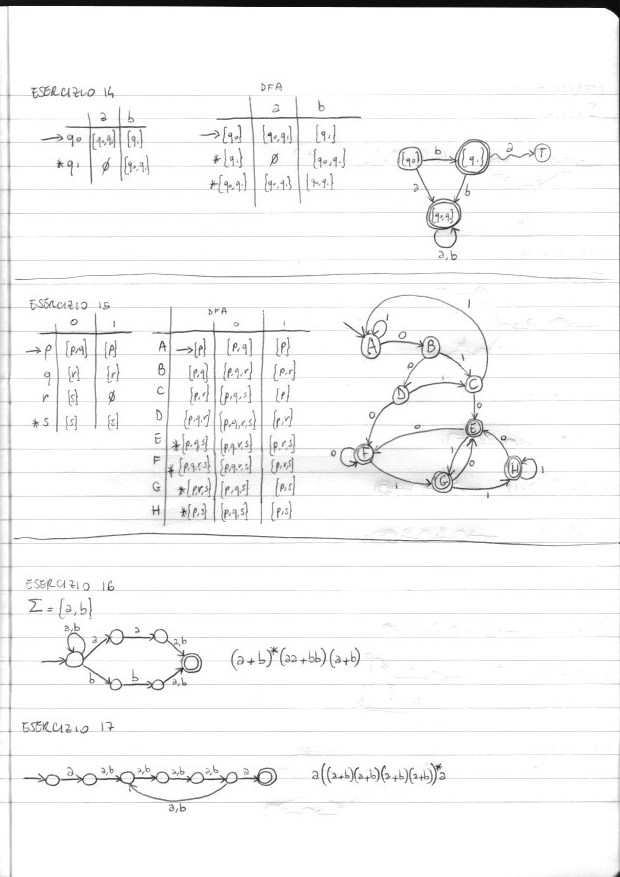 ESERCIZIO 14
DFA
a b
a b
→q0 {q0,q1} {q1}
→{q0} {q0,q1} {q1}
*q1 ∅ {q0,q1}
*{q1} ∅ {q0,q1}
*{q0,q1} {q0,q1} {q0,q1}
{q0} b {q1} a T
a b
{q0,q1}
a,b
ESERCIZIO 15
DFA
0 1
0 1
→p {p,q} {p}
q {r} {r}
r {s} ∅
*s {s} {s}
A →{p} {p,q} {p}
B {p,q} {p,q,r} {p,r}
C {p,r} {p,q,s} {p}
D {p,q,r} {p,q,r,s} {p,r}
E *{p,q,s} {p,q,r,s} {p,r,s}
F *{p,q,r,s} {p,q,r,s} {p,r,s}
G *{p,r,s} {p,q,s} {p,s}
H *{p,s} {p,q,s} {p,s}
1
1
A 0 B
0 1
D 1 C
0 0
0 E
0 F 1 0 0
1 G 1 H 1
ESERCIZIO 16
Σ = {a,b}
a,b
a a a,b
b b a,b
(a+b)*(aa+bb)(a+b)
ESERCIZIO 17
a a,b a,b a,b a,b a
a,b
a((a+b)(a+b)(a+b)(a+b))*a